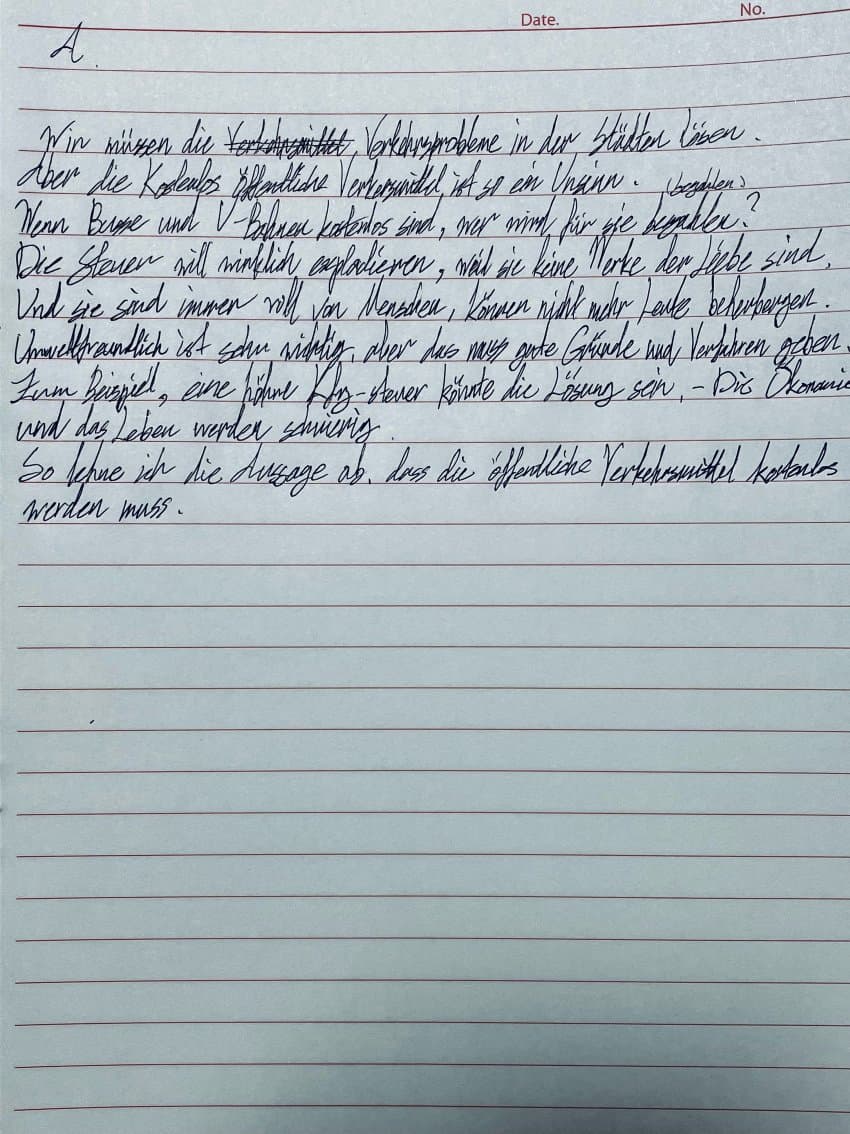 Date. No.
A.
Wir müssen die Verkehrsmittel, Verkehrsprobleme in der Städten lösen.
Aber die Kostenlos öffentliche Verkersmittel ist so ein Unsinn. (bezahlen)
Wenn Busse und U-Bahnen kostenlos sind, wer wird für sie bezahlen?
Die Steuer will wirklich explodieren, weil sie keine Werke der Liebe sind.
Und sie sind immer voll von Menschen, können nicht mehr Leute beherbergen.
Umweltfreundlich ist sehr wichtig, aber das muss gute Gründe und Verfahren geben.
Zum Beispiel, eine höhne Kfz-steuer könnte die Lösung sein, - Die Ökonomie
und das Leben werden schwierig.
So lehne ich die Aussage ab, dass die öffentliche Verkehrsmittel kostenlos
werden muss.